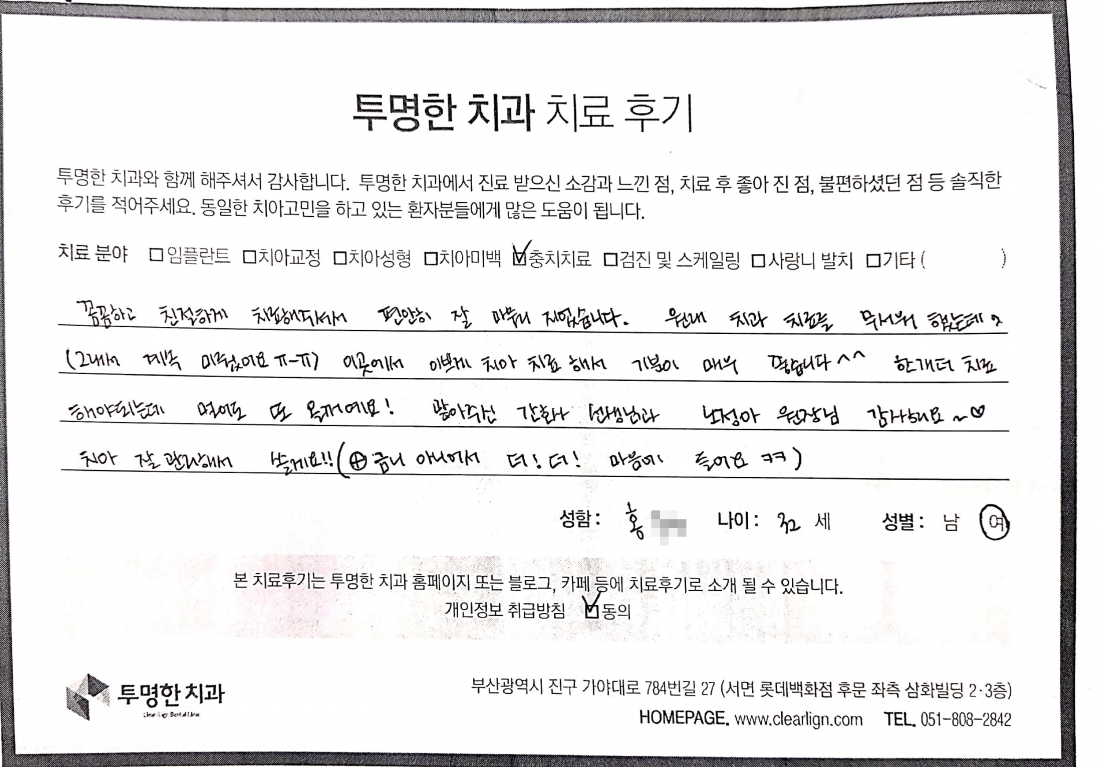 투명한 치과 치료 후기
투명한 치과와 함께 해주셔서 감사합니다. 투명한 치과에서 진료 받으신 소감과 느낀 점, 치료 후 좋아 진 점, 불편하셨던 점 등 솔직한
후기를 적어주세요. 동일한 치아고민을 하고 있는 환자분들에게 많은 도움이 됩니다.
치료 분야 □임플란트 □치아교정 □치아성형 □치아미백 ☑충치치료 □검진 및 스케일링 □사랑니 발치 □기타 ( )
꼼꼼하고 친절하게 치료해주셔서 편안히 잘 마무리 지었습니다. 원래 치과 치료를 무서워 했는데
(그래서 계속 미뤘어요 ㅠ-ㅠ) 이곳에서 이쁘게 치아 치료 해서 기분이 매우 좋습니다^^ 한개더 치료
해야되는데 먼이도 또 올게예요! 맡아주신 간호사 선생님과 노정아 원장님 감사해요~♡
치아 잘 관리해서 쓸게요!! (⊕금니 아니어서 더! 더! 마음에 들어요 ㅋㅋ)
성함: 홍 나이: 32 세 성별: 남 여
본 치료후기는 투명한 치과 홈페이지 또는 블로그, 카페 등에 치료후기로 소개 될 수 있습니다.
개인정보 취급방침 ☑동의
투명한 치과
Clear-lign Dental Clinic
부산광역시 진구 가야대로 784번길 27 (서면 롯데백화점 후문 좌측 삼화빌딩 2·3층)
HOMEPAGE. www.clearlign.com TEL. 051-808-2842